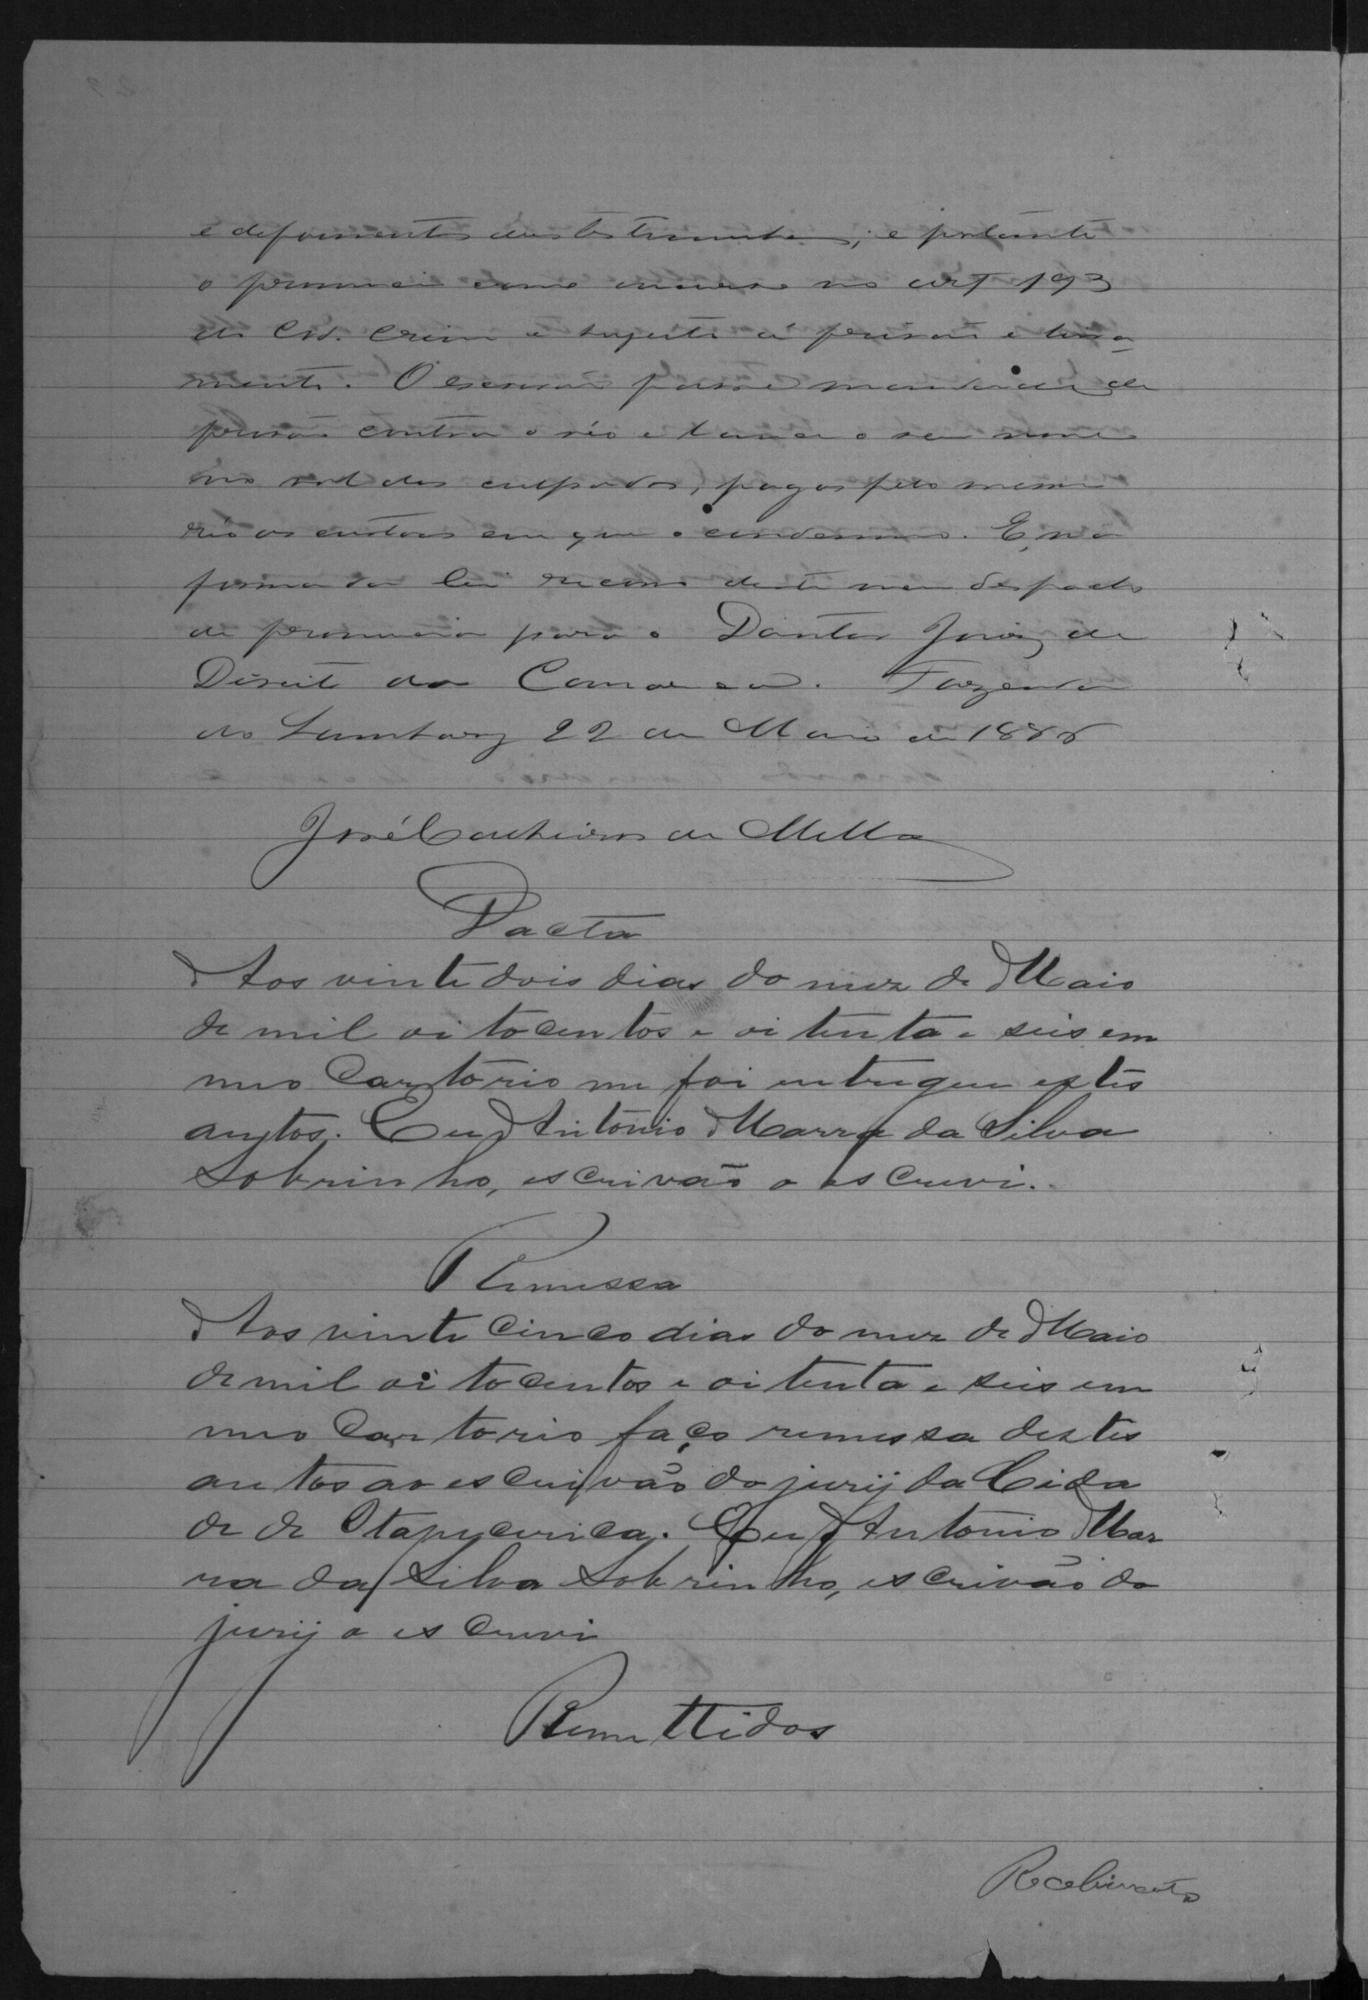 e depoimentos das testemunhas; e portanto
o pronuncio como incurso no art 193
do Cod. Crim e sugeito á prisão e livra
mento. O escrivão passe mandado de
prisão contra o réo e lance o seu nome
no rol dos culpados, pagas pelo mesmo
réo as custas em que o condemno. E, na
forma da lei recorro deste meu despacho
de pronuncia para o Doutor Juiz de
Direito da Comarca. Fazenda
do 22 de Maio de 1886
José de Mello
Dacta
Aos vinte dois dias do mez de Maio
de mil oitocentos e oitenta e seis em
meo Cartorio me foi entregue estes
autos. Eu Antonio Marra da Silva
Sobrinho, escrivão o escrevi.
Remessa
Aos vinte cinco dias do mez de Maio
de mil oitocentos e oitenta e seis em
meo Cartorio faço remessa destes
autos ao escrivão do jury da Cida
de de Itapycerica. Eu Antonio Mar
ra da Silva Sobrinho, escrivão do
jury o escrevi
Remettidos
Recebimento